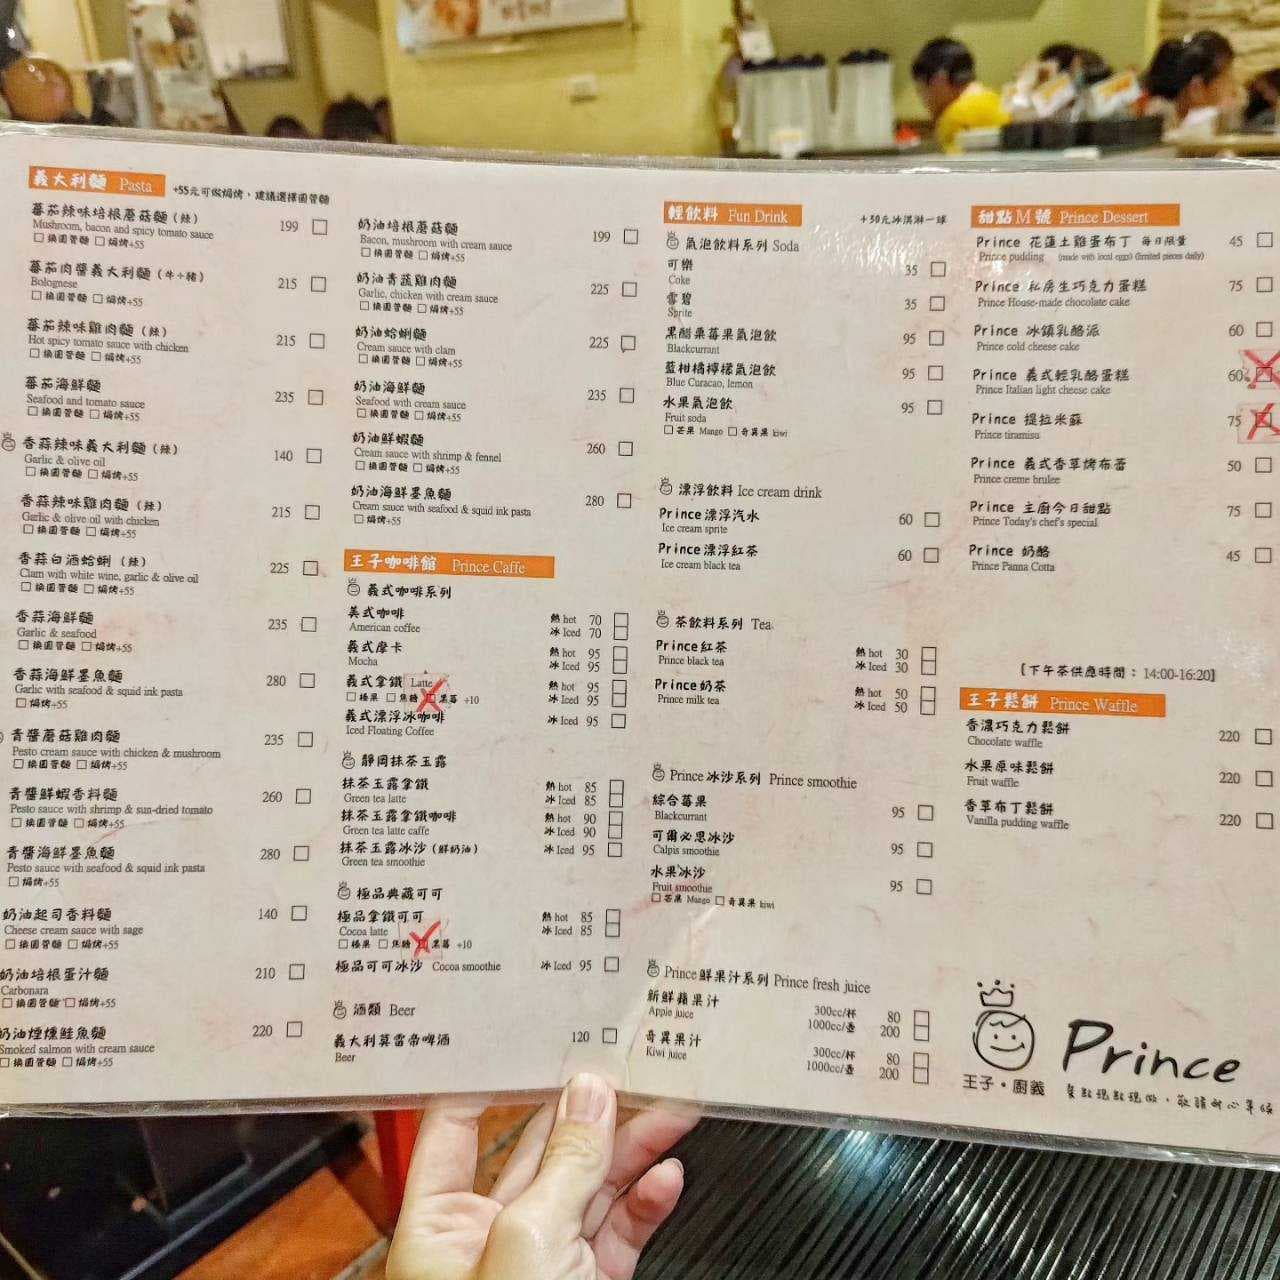 義大利麵 Pasta +55元可做焗烤，建議選擇圓管麵
蕃茄辣味培根蘑菇麵(辣) 199
Mushroom, bacon and spicy tomato sauce
換圓管麵 焗烤+55
蕃茄肉醬義大利麵(牛+豬) 215
Bolognese
換圓管麵 焗烤+55
蕃茄辣味雞肉麵(辣) 215
Hot spicy tomato sauce with chicken
換圓管麵 焗烤+55
蕃茄海鮮麵 235
Seafood and tomato sauce
換圓管麵 焗烤+55
香蒜辣味義大利麵(辣) 140
Garlic & olive oil
換圓管麵 焗烤+55
香蒜辣味雞肉麵(辣) 215
Garlic & olive oil with chicken
換圓管麵 焗烤+55
香蒜白酒蛤蜊(辣) 225
Clam with white wine, garlic & olive oil
換圓管麵 焗烤+55
香蒜海鮮麵 235
Garlic & seafood
換圓管麵 焗烤+55
香蒜海鮮墨魚麵 280
Garlic with seafood & squid ink pasta
焗烤+55
青醬蘑菇雞肉麵 235
Pesto cream sauce with chicken & mushroom
換圓管麵 焗烤+55
青醬鮮蝦香料麵 260
Pesto sauce with shrimp & sun-dried tomato
換圓管麵 焗烤+55
青醬海鮮墨魚麵 280
Pesto sauce with seafood & squid ink pasta
焗烤+55
奶油起司香料麵 140
Cheese cream sauce with sage
換圓管麵 焗烤+55
奶油培根蛋汁麵 210
Carbonara
換圓管麵 焗烤+55
奶油煙燻鮭魚麵 220
Smoked salmon with cream sauce
換圓管麵 焗烤+55
奶油培根蘑菇麵 199
Bacon, mushroom with cream sauce
換圓管麵 焗烤+55
奶油青蔬雞肉麵 225
Garlic, chicken with cream sauce
換圓管麵 焗烤+55
奶油蛤蜊麵 225
Cream sauce with clam
換圓管麵 焗烤+55
奶油海鮮麵 235
Seafood with cream sauce
換圓管麵 焗烤+55
奶油鮮蝦麵 260
Cream sauce with shrimp & fennel
換圓管麵 焗烤+55
奶油海鮮墨魚麵 280
Cream sauce with seafood & squid ink pasta
焗烤+55
王子咖啡館 Prince Caffe
義式咖啡系列
美式咖啡 熱 hot 70
American coffee 冰 Iced 70
義式摩卡 熱 hot 95
Mocha 冰 Iced 95
義式拿鐵 Latte 熱 hot 95
榛果 焦糖 黑莓 +10 冰 Iced 95
義式漂浮冰咖啡 冰 Iced 95
Iced Floating Coffee
靜岡抹茶玉露
抹茶玉露拿鐵 熱 hot 85
Green tea latte 冰 Iced 85
抹茶玉露拿鐵咖啡 熱 hot 90
Green tea latte caffe 冰 Iced 90
抹茶玉露冰沙(鮮奶油) 冰 Iced 95
Green tea smoothie
極品典藏可可
極品拿鐵可可 熱 hot 85
Cocoa latte 冰 Iced 85
榛果 焦糖 黑莓 +10
極品可可冰沙 Cocoa smoothie 冰 Iced 95
酒類 Beer
義大利莫雷帝啤酒 120
Beer
輕飲料 Fun Drink +30元冰淇淋一球
氣泡飲料系列 Soda
可樂 35
Coke
雪碧 35
Sprite
黑醋栗莓果氣泡飲 95
Blackcurrant
藍柑橘檸檬氣泡飲 95
Blue Curacao, lemon
水果氣泡飲 95
Fruit soda
芒果 Mango 奇異果 kiwi
漂浮飲料 Ice cream drink
Prince漂浮汽水 60
Ice cream sprite
Prince漂浮紅茶 60
Ice cream black tea
茶飲料系列 Tea
Prince紅茶 熱 hot 30
Prince black tea 冰 Iced 30
Prince奶茶 熱 hot 50
Prince milk tea 冰 Iced 50
Prince冰沙系列 Prince smoothie
綜合莓果 95
Blackcurrant
可爾必思冰沙 95
Calpis smoothie
水果冰沙 95
Fruit smoothie
芒果 Mango 奇異果 kiwi
Prince鮮果汁系列 Prince fresh juice
新鮮蘋果汁 300cc/杯 80
Apple juice 1000cc/壺 200
奇異果汁 300cc/杯 80
Kiwi juice 1000cc/壺 200
甜點M號 Prince Dessert
Prince 花蓮土雞蛋布丁 每日限量 45
Prince pudding (made with local eggs) (limited pieces daily)
Prince 私房生巧克力蛋糕 75
Prince House-made chocolate cake
Prince 冰鎮乳酪派 60
Prince cold cheese cake
Prince 義式輕乳酪蛋糕 60
Prince Italian light cheese cake
Prince 提拉米蘇 75
Prince tiramisu
Prince 義式香草烤布蕾 50
Prince creme brulee
Prince 主廚今日甜點 75
Prince Today's chef's special
Prince 奶酪 45
Prince Panna Cotta
[下午茶供應時間：14:00-16:20]
王子鬆餅 Prince Waffle
香濃巧克力鬆餅 220
Chocolate waffle
水果原味鬆餅 220
Fruit waffle
香草布丁鬆餅 220
Vanilla pudding waffle
王子・廚義
Prince
餐點現點現做，敬請耐心等候